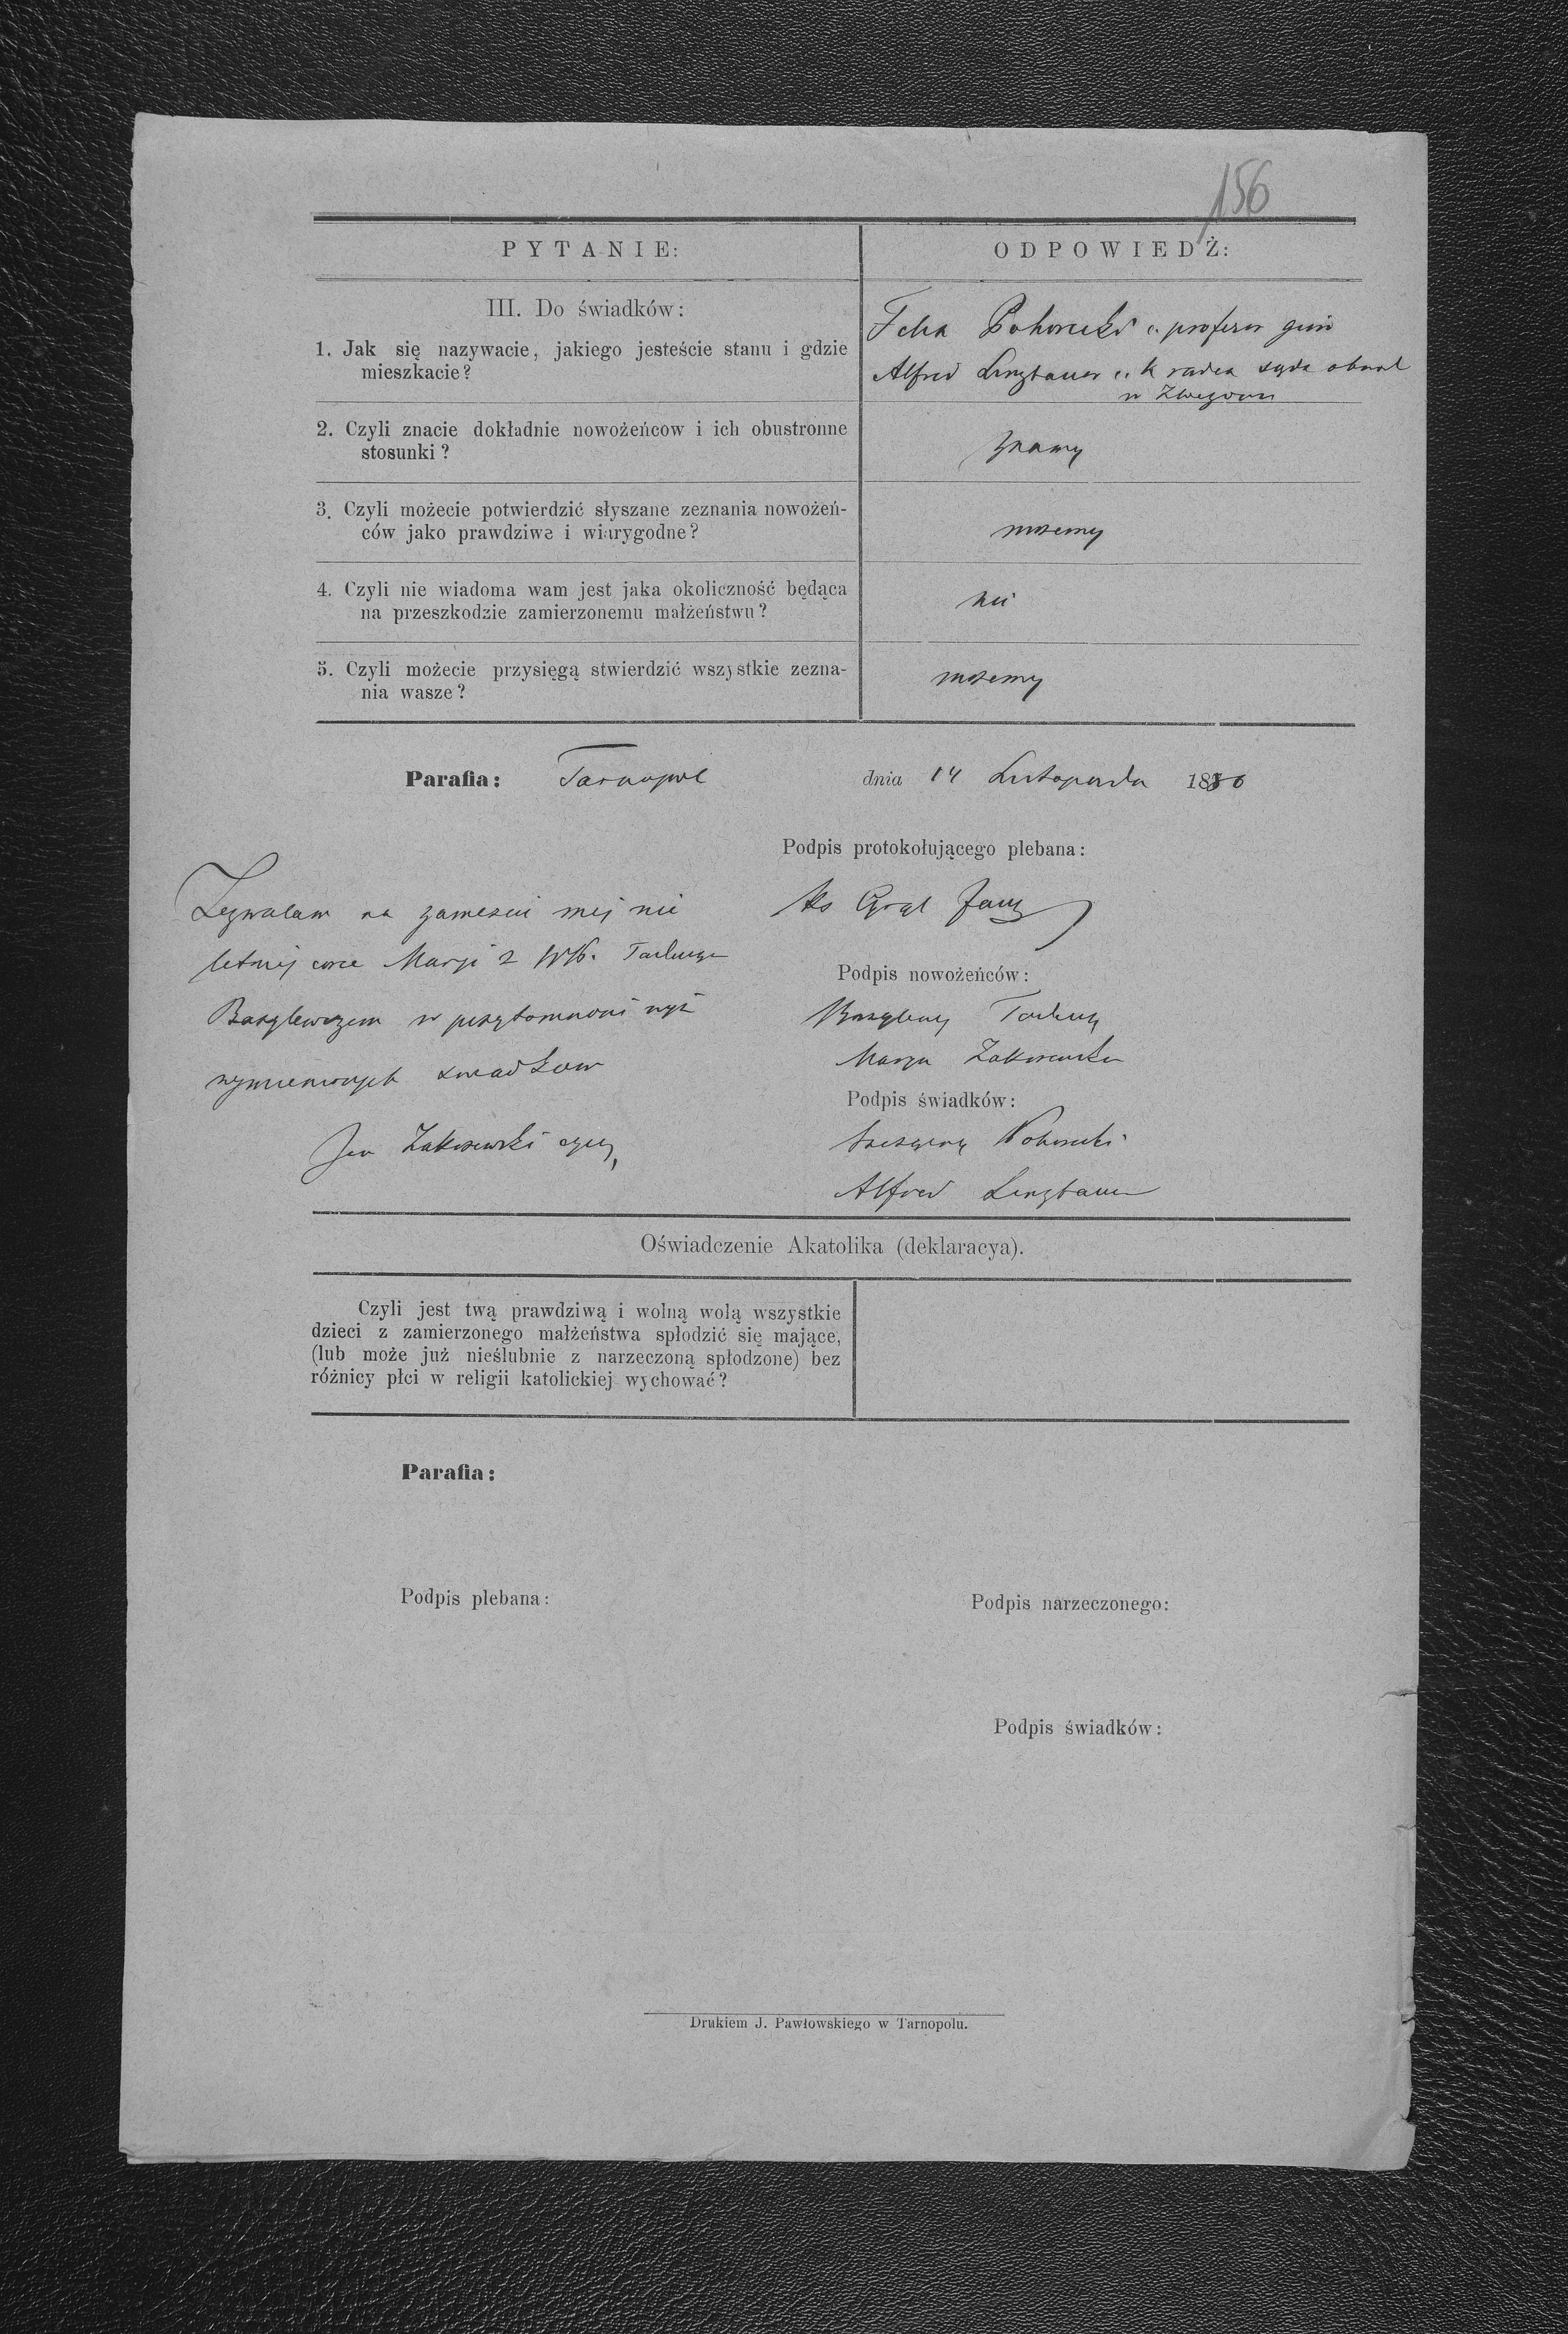 156
PYTANIE:
ODPOWIEDŹ:
III. Do świadków:
1. Jak się nazywacie, jakiego jesteście stanu i gdzie
mieszkacie?
profesor
Alfred radca
2. Czyli znacie dokładnie nowożeńcow i ich obustronne
stosunki?
znamy
3. Czyli możecie potwierdzić słyszane zeznania nowożeń-
ców jako prawdziwe i wiarygodne?
możemy
4. Czyli nie wiadoma wam jest jaka okoliczność będąca
na przeszkodzie zamierzonemu małżeństwu?
nie
5. Czyli możecie przysięgą stwierdzić wszystkie zezna-
nia wasze?
możemy
Parafia: Tarnopol
dnia 14 Listopada 1880
Podpis protokołującego plebana:
Zezwalam na mej nie
letniej Marji z
Podpis nowożeńców:
w
Marya
świadków
Podpis świadków:
Jan
Alfred
Oświadczenie Akatolika (deklaracya).
Czyli jest twą prawdziwą i wolną wolą wszystkie
dzieci z zamierzonego małżeństwa spłodzić się mające,
(lub może już nieślubnie z narzeczoną spłodzone) bez
różnicy płci w religii katolickiej wychować?
Parafia:
Podpis plebana:
Podpis narzeczonego:
Podpis świadków:
Drukiem J. Pawłowskiego w Tarnopolu.